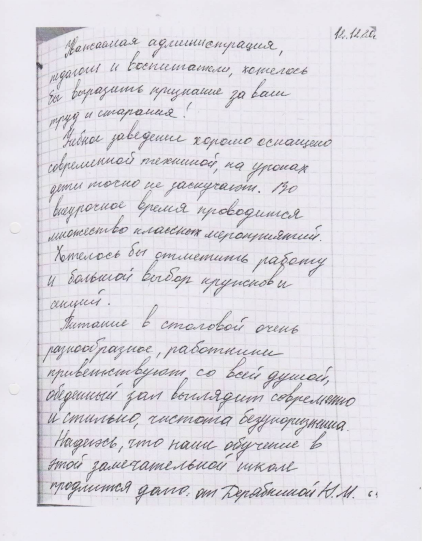 12.12.22г.
Уважаемая администрация,
педагоги и воспитатели, хотелось
бы выразить признание за ваш
труд и старания!
Учебное заведение хорошо оснащено
современной техникой, на уроках
дети точно не заскучают. Во
внеурочное время проводится
множество классных мероприятий.
Хотелось бы отметить работу
и большой выбор кружков и
секций.
Питание в столовой очень
разнообразное, работники
приветствуют со всей душой,
обеденный зал выглядит современно
и стильно, чистота безукоризненна.
Надеюсь, что наше обучение в
этой замечательной школе
продлится долго. от Дерябкиной Н.М.